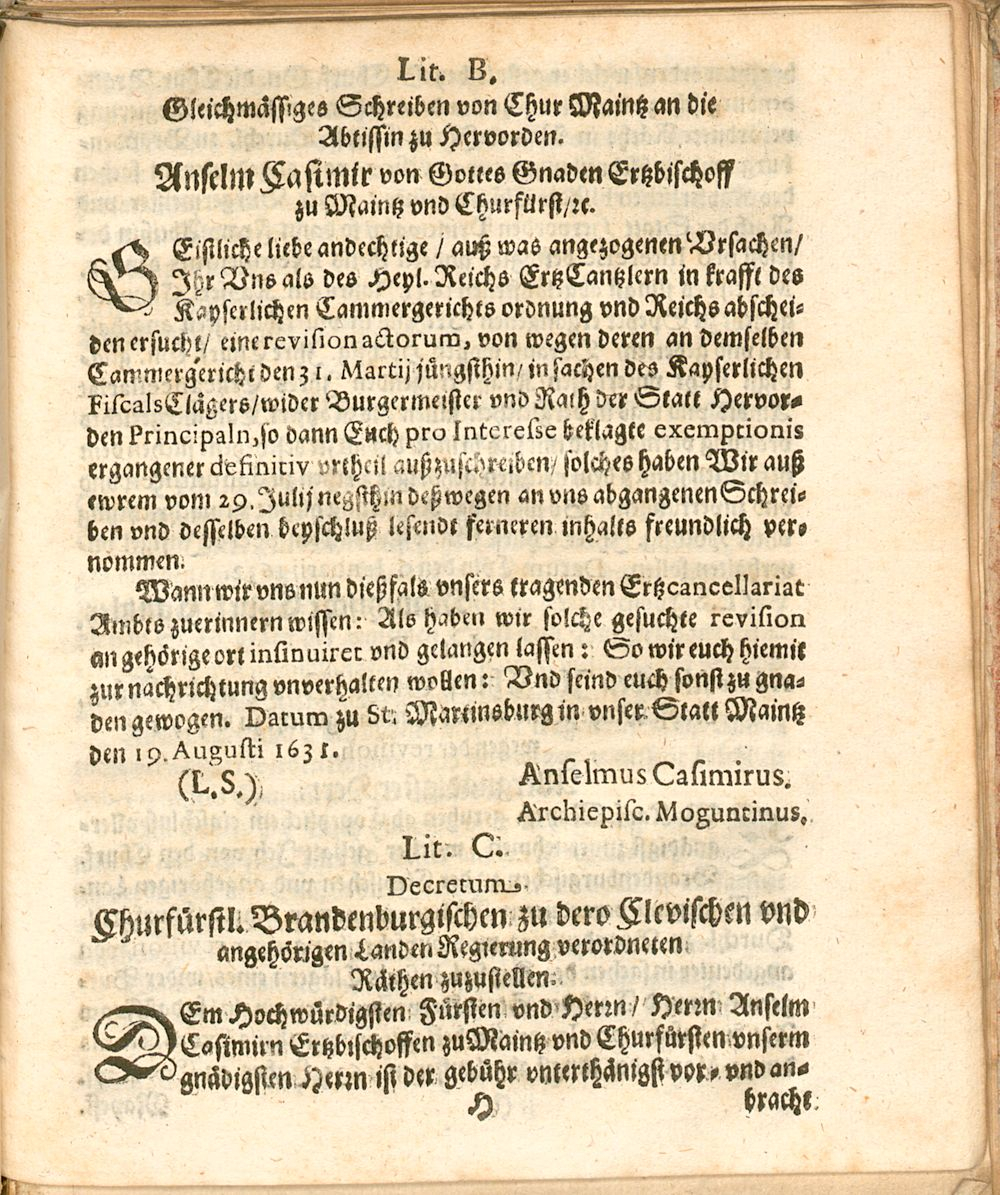 Lit. B.
Gleichmässiges Schreiben von Chur Maintz an die
Abtissin zu Hervorden.
Anselm Casimir von Gottes Gnaden Ertzbischoff
zu Maintz vnd Churfürst/ꝛc.
GEistliche liebe andechtige / auß was angezogenen Vrsachen/
Ihr Vns als des Heyl. Reichs ErtzCantzlern in krafft des
Kayserlichen Cammergerichts ordnung vnd Reichs abschei-
den ersucht/ eine revision actorum, von wegen deren an demselben
Cammergericht den 31. Martij jüngsthin/ in sachen des Kayserlichen
Fiscals Clägers/wider Burgermeister vnd Rath der Statt Hervor-
den Principaln, so dann Euch pro Interesse beklagte exemptionis
ergangener definitiv vrtheil außzuschreiben/ solches haben Wir auß
ewrem vom 29. Julij negsthin deßwegen an vns abgangenen Schrei-
ben vnd desselben beyschluß lesendt ferneren inhalts freundlich ver-
nommen.
Wann wir vns nun dießfals vnsers tragenden Ertzcancellariat
Ambts zuerinnern wissen: Als haben wir solche gesuchte revision
an gehörige ort insinuiret vnd gelangen lassen: So wir euch hiemit
zur nachrichtung vnverhalten wollen: Vnd seind euch sonst zu gna-
den gewogen. Datum zu St. Martinsburg in vnser Statt Maintz
den 19. Augusti 1631.
(L.S.) Anselmus Casimirus.
Archiepisc. Moguntinus.
Lit. C.
Decretum.
Churfürstl. Brandenburgischen zu dero Clevischen vnd
angehörigen Landen Regierung verordneten
Räthen zuzustellen.
DEm Hochwürdigsten Fürsten vnd Herrn/ Herrn Anselm
Casimirn Ertzbischoffen zu Maintz vnd Churfürsten vnserm
gnädigsten Herrn ist der gebühr vnterthänigst vor- vnd an-
H bracht